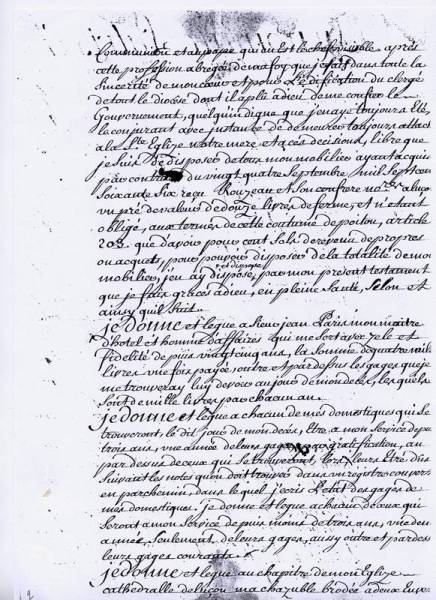 Communion et au pape qui en Est le chef visible, après
cette profession abregée de ma foy que je fais dans toute la
Sincerité de mon cœur et pour L'edification du Clergé
de tout le diocèse dont il a plu a dieu de me confier le
Gouvernement, quelqu'indigne que j'en aye toujours Eté,
le conjurant avec instance de demeurer toujours attaché
a la Ste Eglize notre mere et a ces decisions, libre que
je suis de disposer de tous mon mobilier ayant acquis
par contrat du vingt quatre Septembre, mil Sept cent
Soixante Six reçu Rouzeau et Son confrere nres a luçon
un pré de valeur de douze livres de ferme, et n'etant
obligé, aux termes de cette coutume de poitou, article
208. que d'avoir pour cent Sols de revenu de propres
ou acquets, pour pouvoir disposer de la totalité de mon
mobilier, j'en ay disposé, et dispose par mon present testament
que je fais graces a dieu, en pleine Santé, Selon et
ainsy qu'il Suit.
je donne et legue a Sieur jean Paris mon maitre
d'hotel et homme d'affaires qui me Sert avec zele et
fidelité de puis vingt cinq ans, la Somme de quatre mil
livres une fois payée outre et par dessus les gages que je
me trouveray luy devoir au jour de mon decès, les quels
Sont de mille livres par chacun an.
je donne et legue a chacun de mes domestiques qui Se
trouveront, le dit jour de mon decès, Etre a mon Service depuis
trois ans, une année de leurs gages par gratification, au
par dessus de ceux qui Se trouveront, lors, leurs Etre dûs
Suivant les notes qu'on doit trouver dans un registre couvert
en parchemin, dans le quel j'ecris L'etat des gages de
mes domestiques. je donne et legue a chacun de ceux qui
Seront a mon Service de puis moins de trois ans, une demi
année, Seulement, de leurs gages, aussy outre et par dessus
leurs gages courants.
je donne et legue au chapitre de mon Eglize
cathedralle de luçon ma chazuble brodée a deux Envers